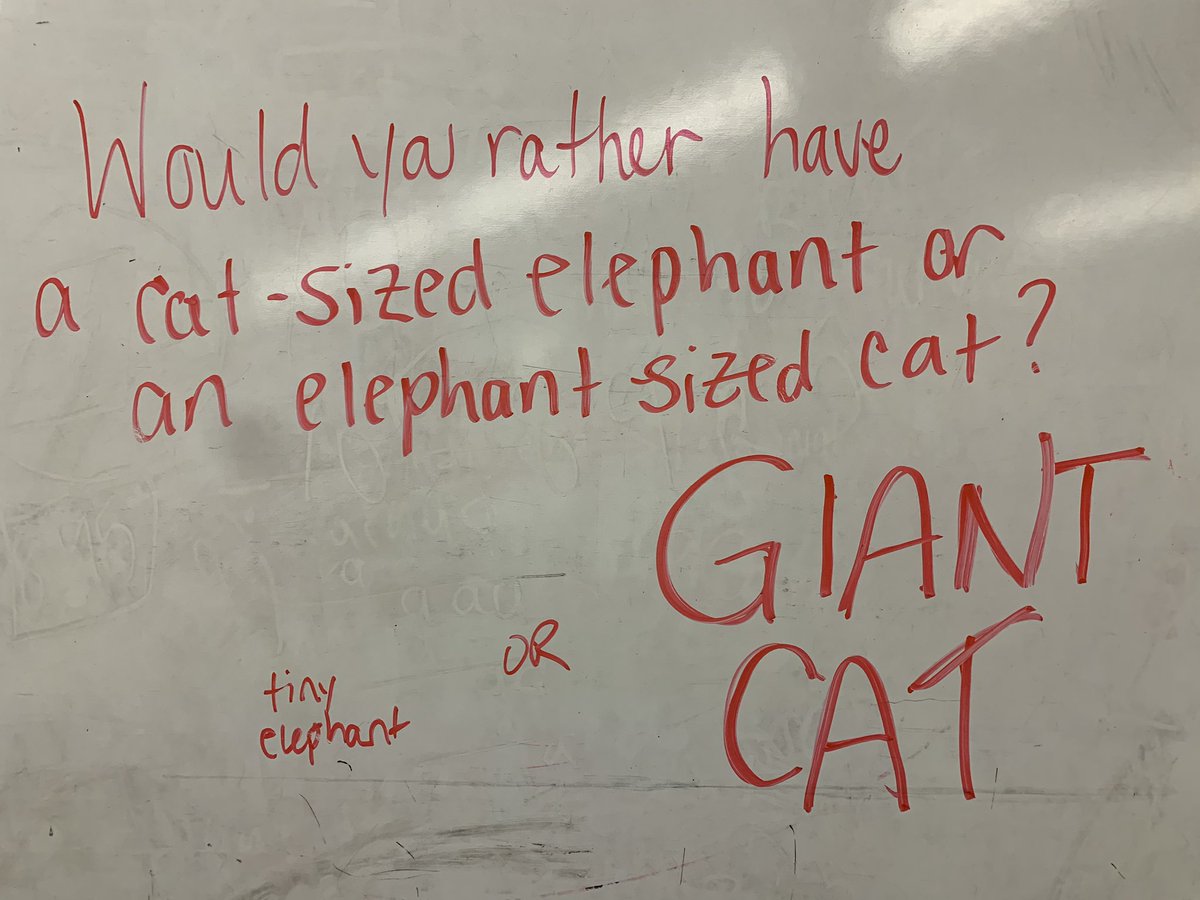 Would ya rather have
a cat-sized elephant or
an elephant sized cat?
GIANT
CAT
OR
tiny
elephant